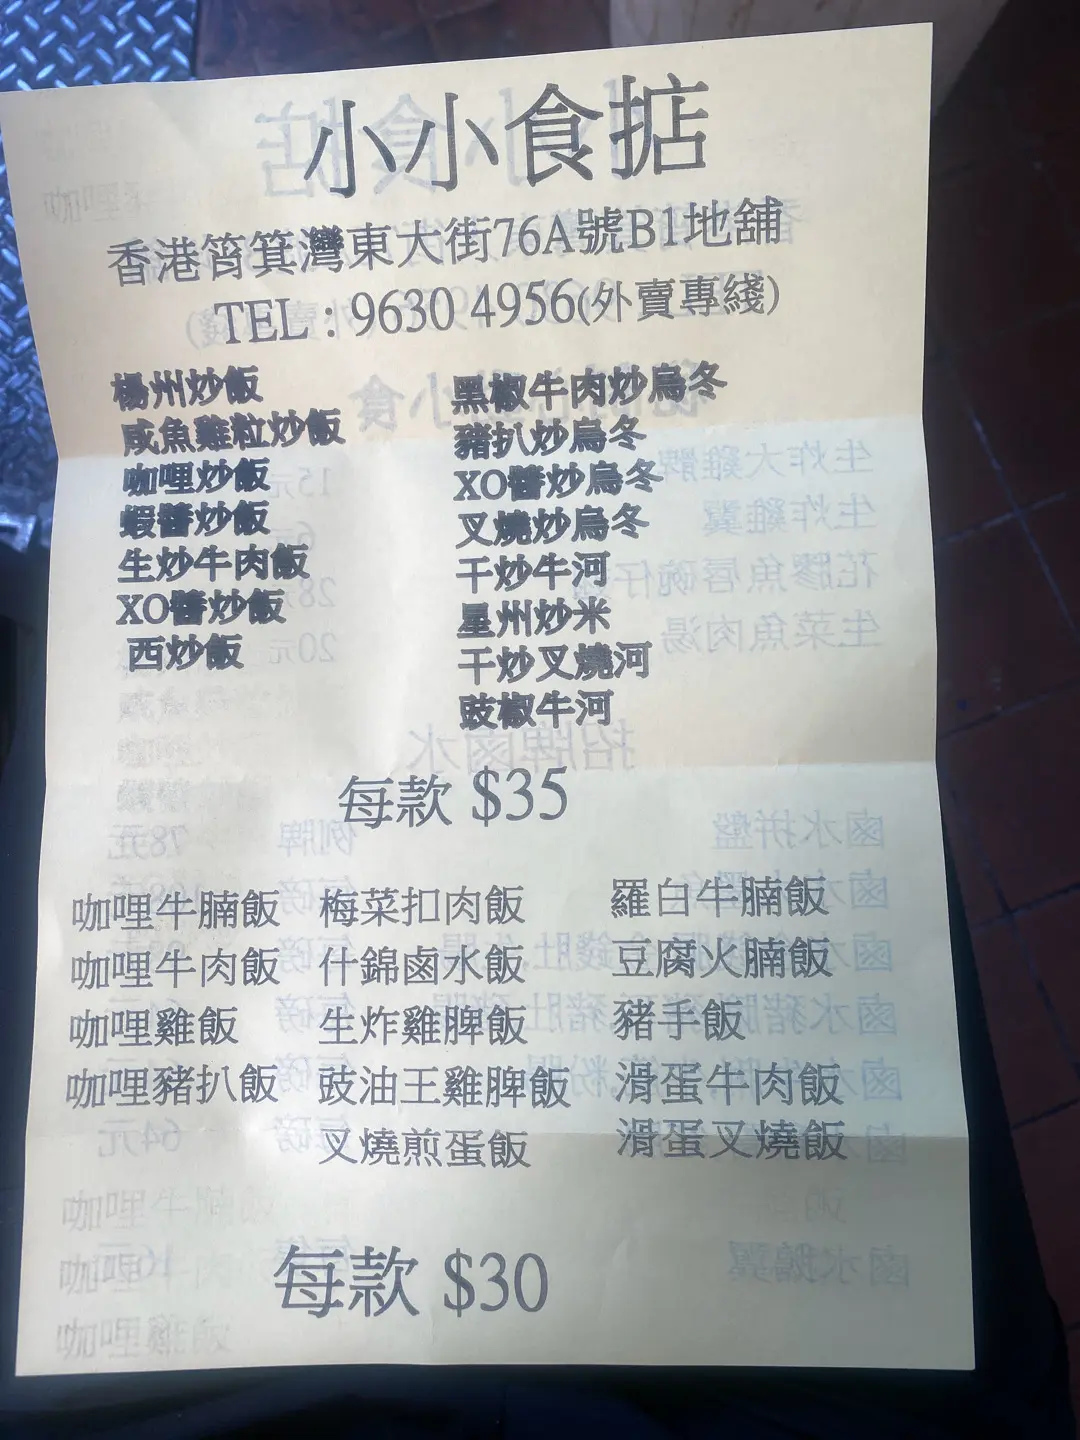 小小食掂
香港筲箕灣東大街76A號B1地舖
TEL : 9630 4956(外賣專綫)
楊州炒飯
咸魚雞粒炒飯
咖哩炒飯
蝦醬炒飯
生炒牛肉飯
XO醬炒飯
西炒飯
黑椒牛肉炒烏冬
豬扒炒烏冬
XO醬炒烏冬
叉燒炒烏冬
干炒牛河
星州炒米
干炒叉燒河
豉椒牛河
每款 $35
咖哩牛腩飯
咖哩牛肉飯
咖哩雞飯
咖哩豬扒飯
梅菜扣肉飯
什錦鹵水飯
生炸雞脾飯
豉油王雞脾飯
叉燒煎蛋飯
羅白牛腩飯
豆腐火腩飯
豬手飯
滑蛋牛肉飯
滑蛋叉燒飯
每款 $30